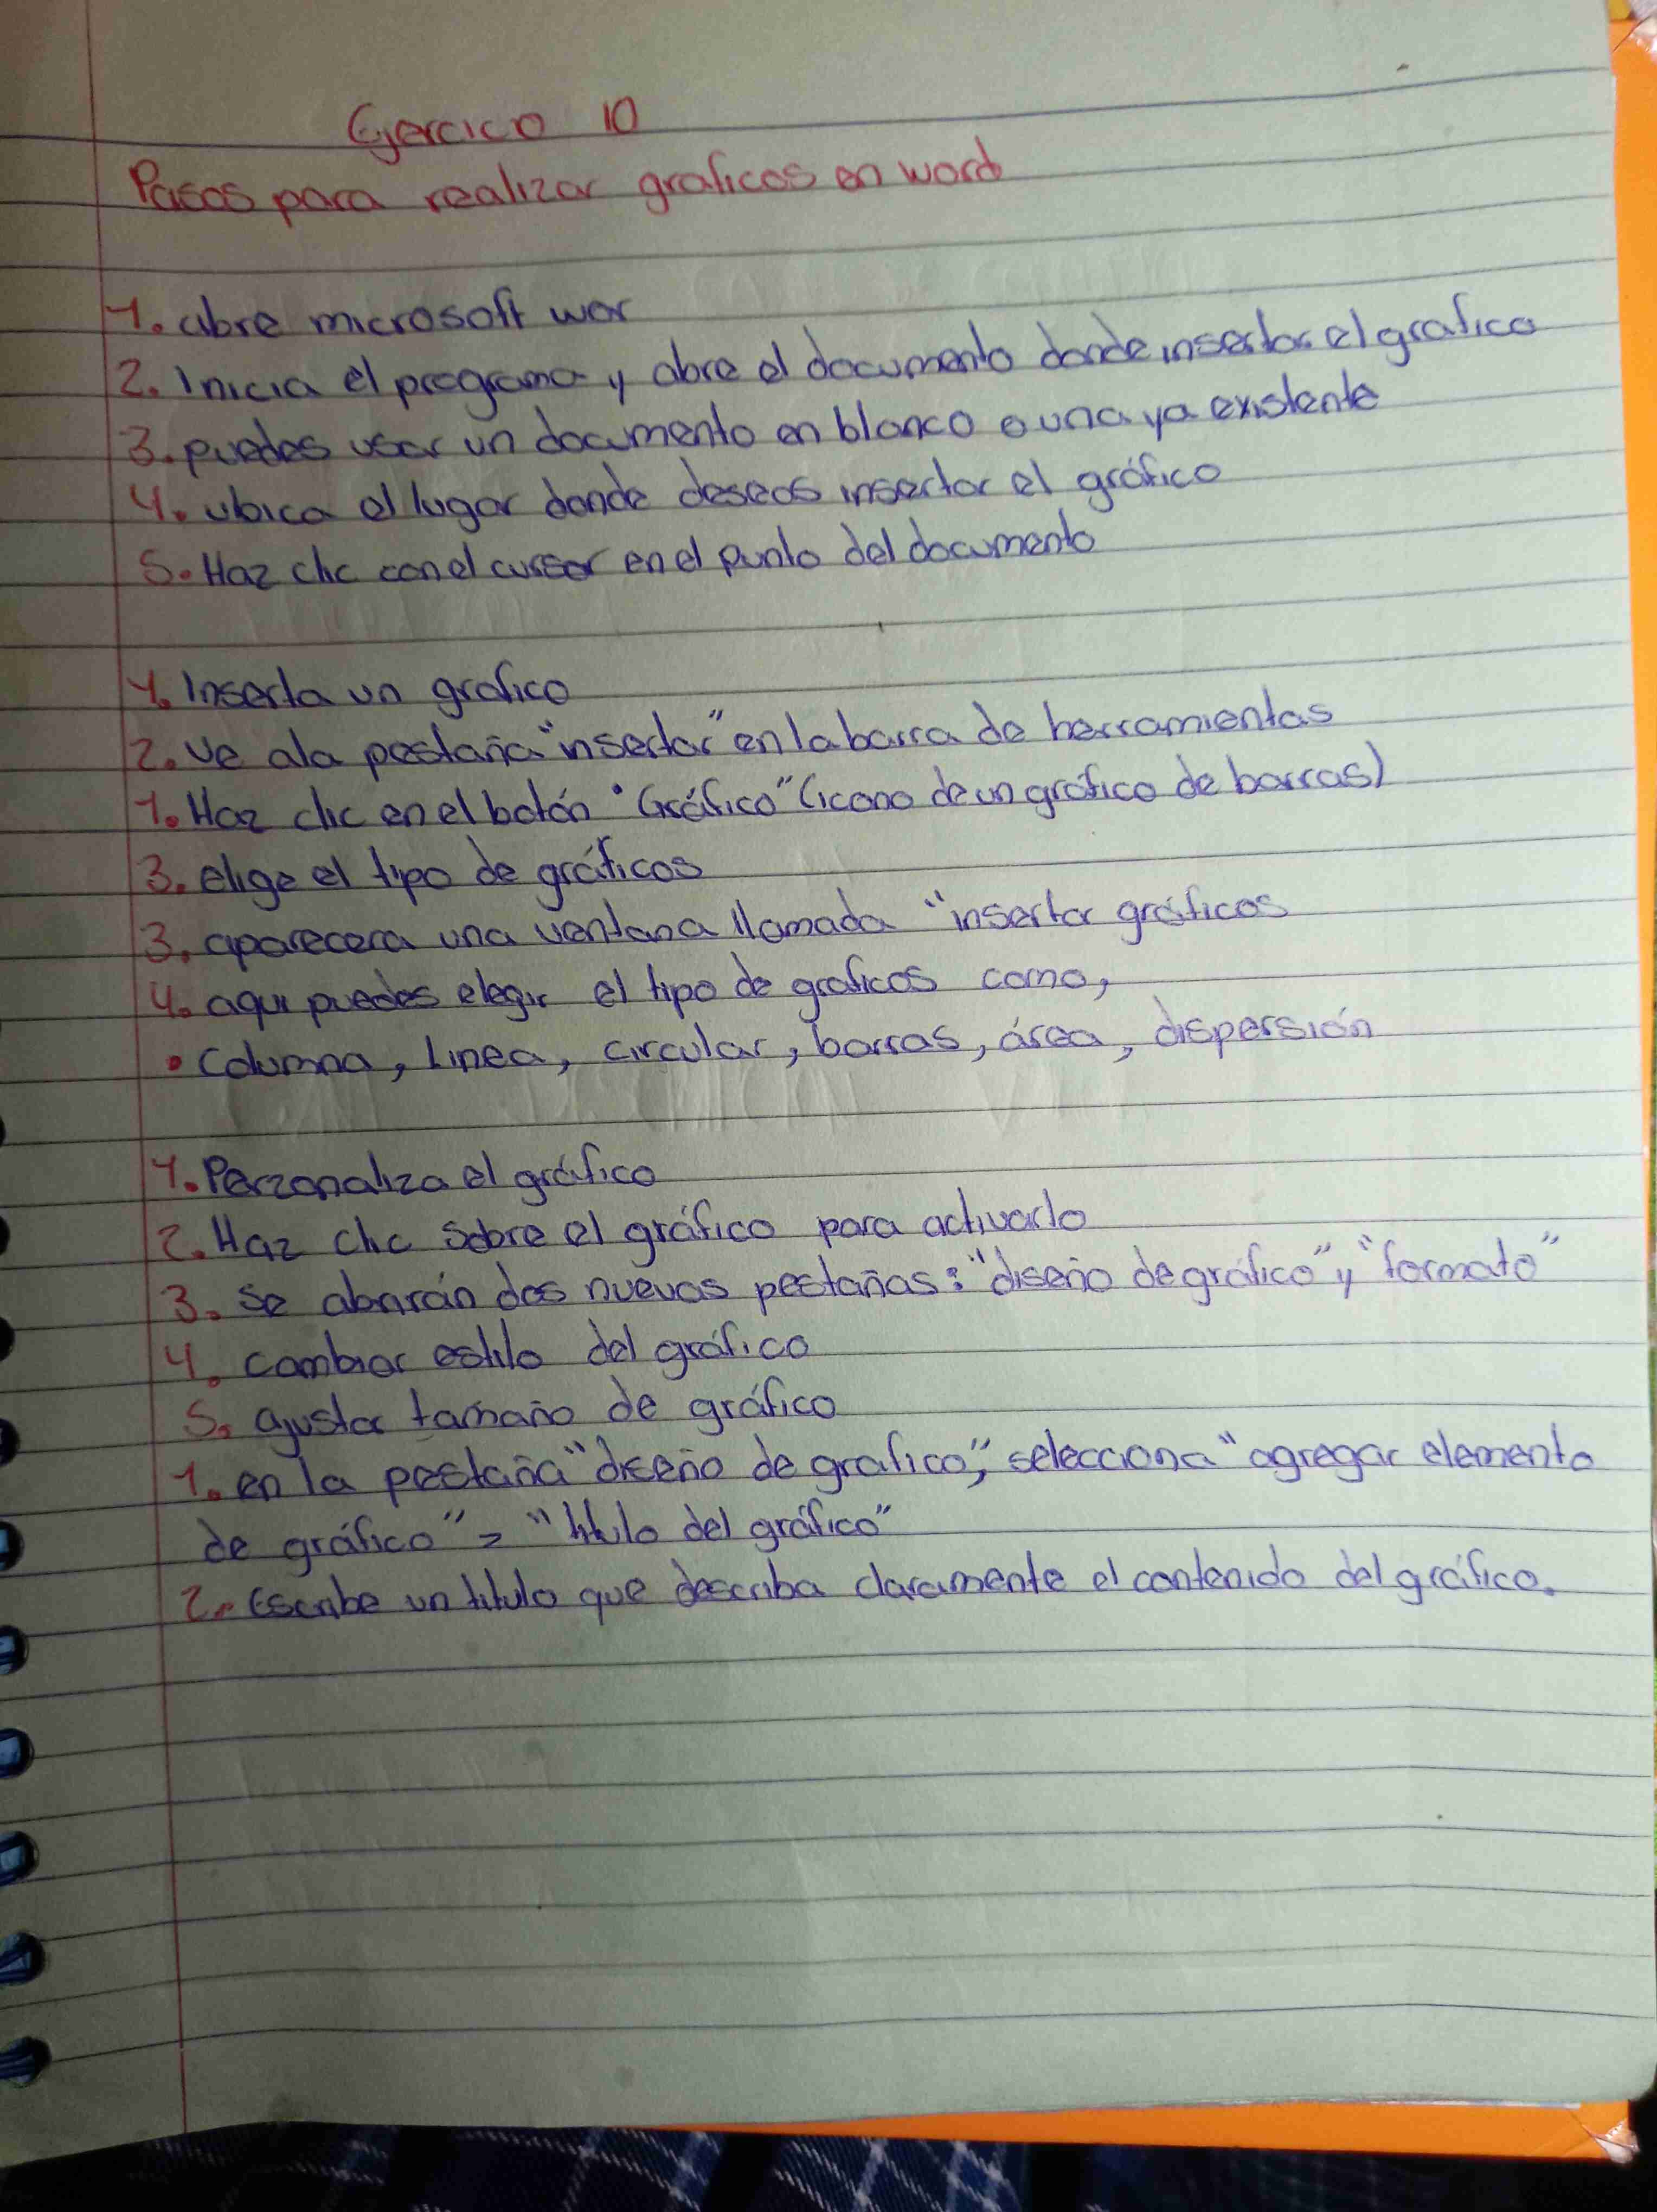 Ejercico 10
Pasos para realizar graficos en word
1. abre microsoft wor
2. Inicia el programa y abre el documento donde insertar el grafico
3. puedes usar un documento en blanco o una ya existente
4. ubica el lugar donde deseas insertar el gráfico
5. Haz clic con el cursor en el punto del documento
1. Inserta un grafico
2. ve ala pestaña "insertar" en la barra de herramientas
1. Haz clic en el botón "Gráfico" (icono de un gráfico de barras)
3. elige el tipo de gráficos
3. aparecera una ventana llamada "insertar gráficos
4. aqui puedes elegir el tipo de graficos como,
• Columna, Linea, circular, barras, área, dispersión
1. Perzonaliza el gráfico
2. Haz clic sobre el gráfico para activarlo
3. se abarán dos nuevas pestañas: "diseño de gráfico" y "formato"
4. cambiar estilo del gráfico
5. ajustar tamaño de gráfico
1. en la pestaña "diseño de grafico", selecciona "agregar elemento
de gráfico" > "titulo del gráfico"
2. Escribe un titulo que describa claramente el contenido del gráfico.